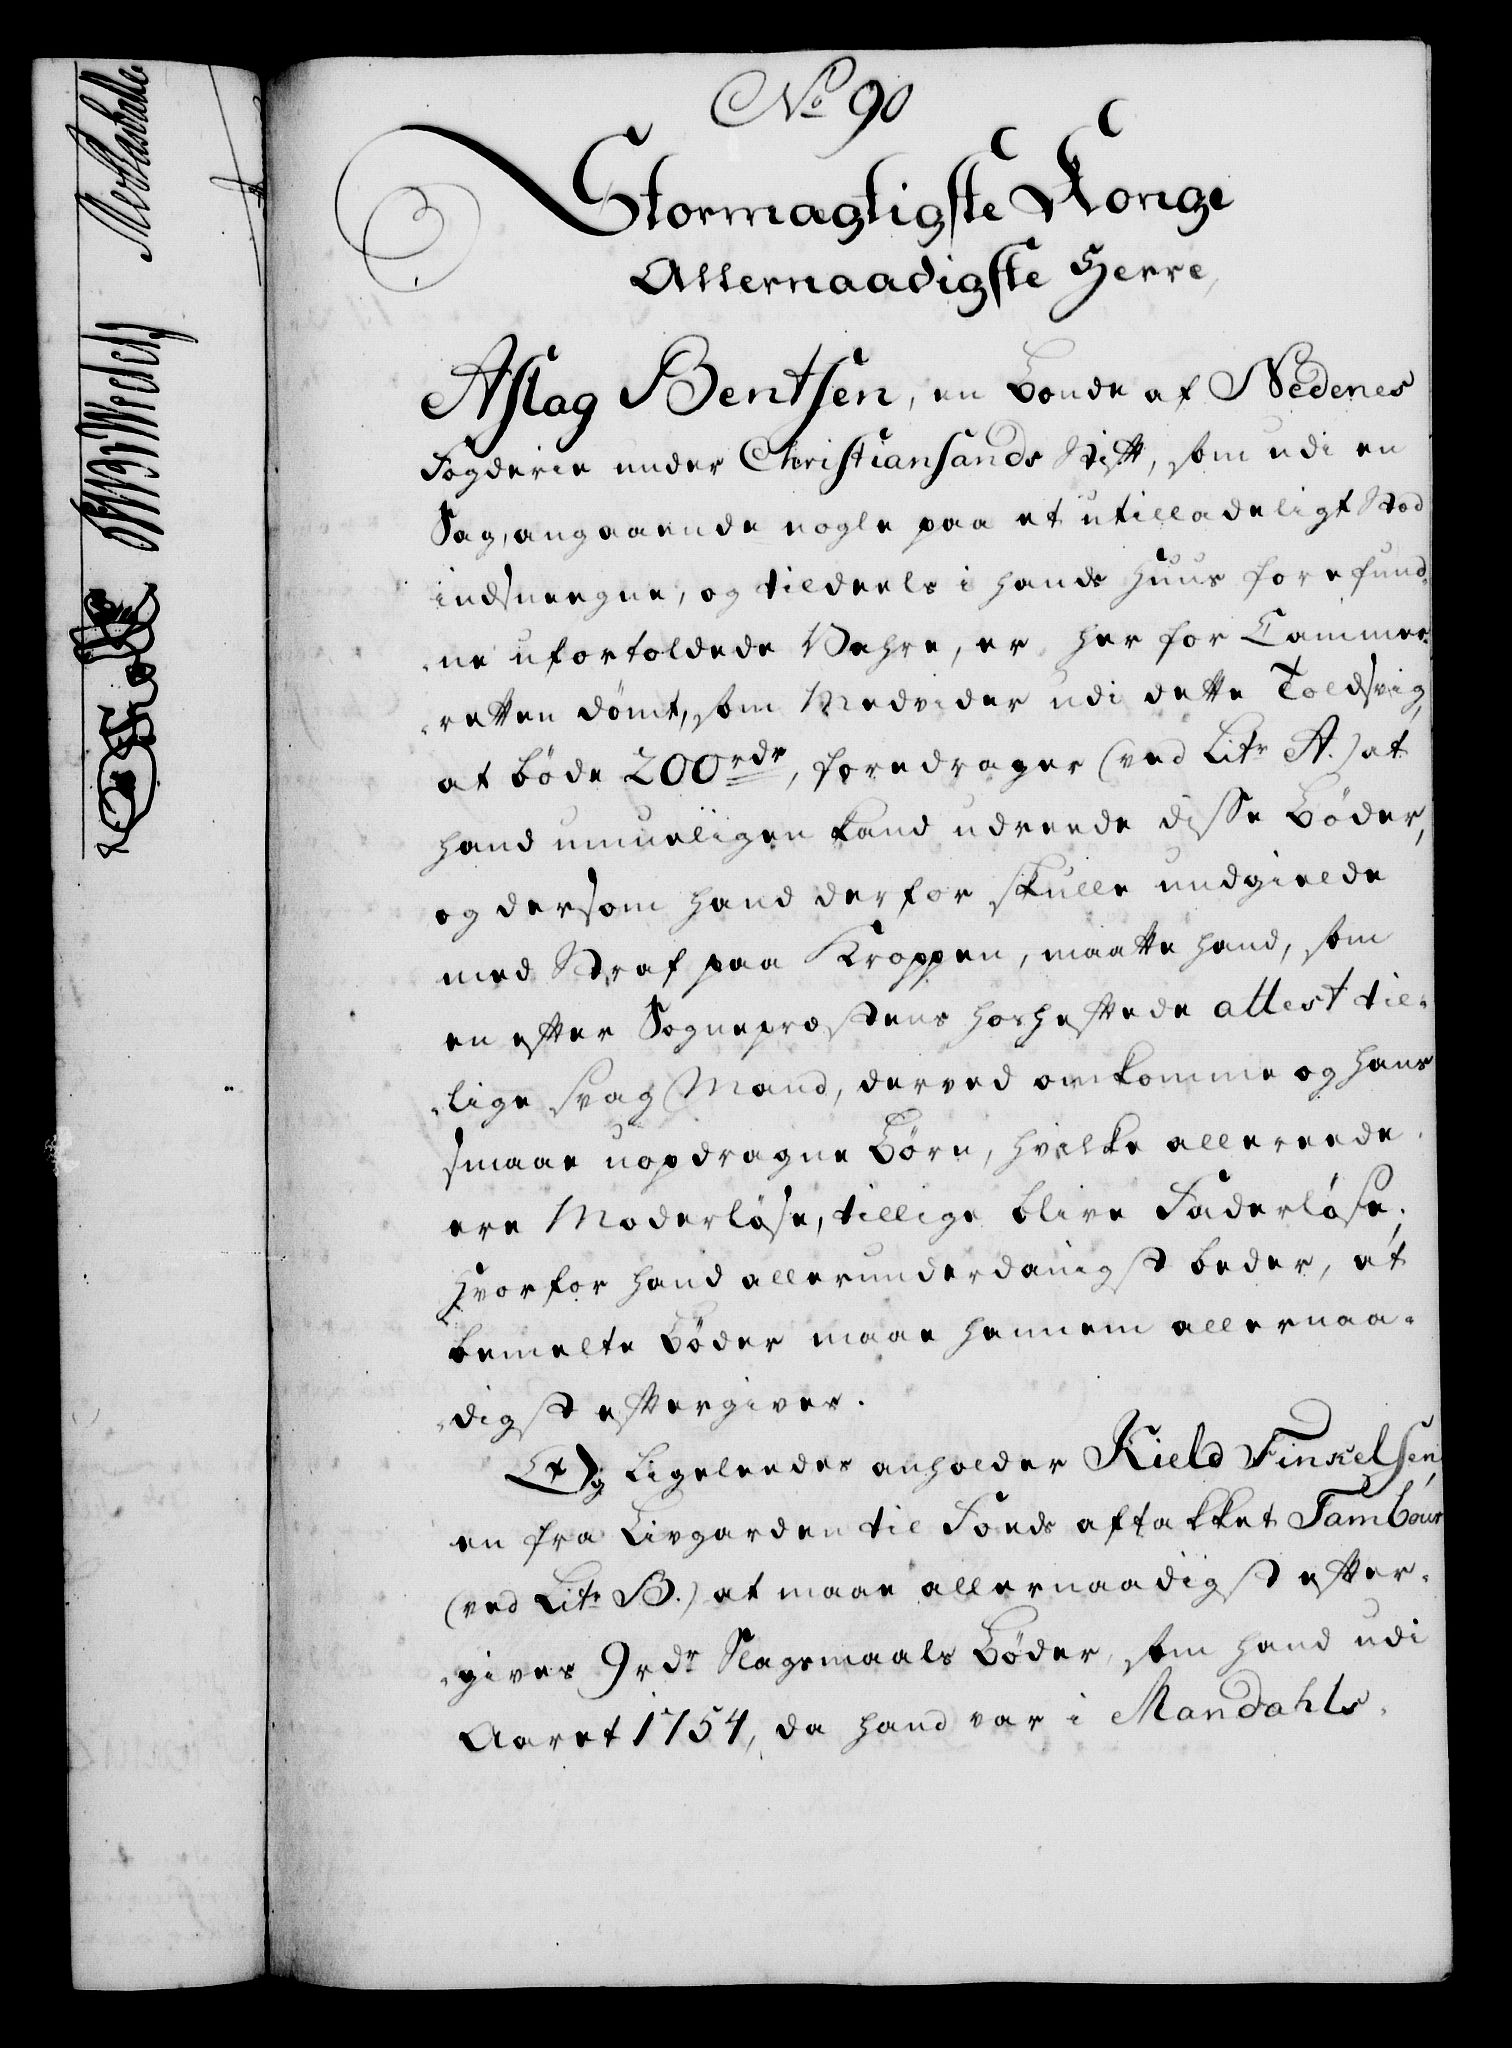 No 90
Stormagtigste Konge
Allernaadigste Herre,
Aslag Bentsen, en Bonde af Nedenes
Fogderie under Christiansands Stift, som udi en
Sag, angaaende nogle paa et utilladeligt Stæd
indsneegne, og tildeels i hands Huus forefund-
-ne ufortoldede Vahre, er her for Cammer-
-retten dömt, som Medvider udi dette Toldsvig,
at böde 200 rdr, foredrager (ved Litr A.) at
hand umueligen kand udreede disse Böder,
og dersom hand derfor skulle undgielde
med Straf paa Kroppen, maatte hand, som
en efter Sognepræstens hoshæftede attest til-
-lige svag Mand, derved omkomme og hans
smaae uopdragne Börn, hvilke allereede
ere Moderlöse, tillige blive Faderlöse;
Hvorfor hand allerunderdanigst beder, at
bemelte Böder maae hannem allernaa-
-digst eftergives.
Og Ligeleedes anholder Kield Finkelsen,
en fra Livgarden til Foeds aftakket Tambour
(ved Litr B.) at maae allernaadigst efter-
-gives 9 rdr Slagsmaals Böder, som hand udi
Aaret 1754, da hand var i Mandahls